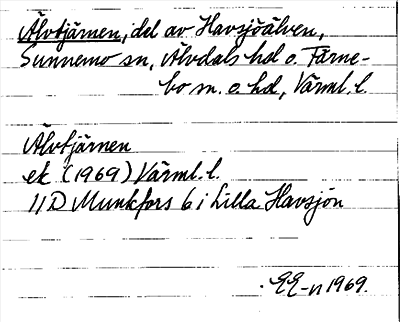 Älvtjärnen, del av Havsjöälven,
Sunnemo sn, Älvdals hd o. Färne-
bo sn. o. hd, Värml. l.
Älvtjärnen
ek (1969) Värml. l.
11D Munkfors 6 i Lilla Havsjön
EE-n 1969.